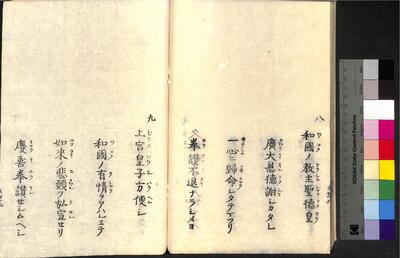 八
和國ノ教主聖德皇
廣大恩德謝シカタシ
一心ニ歸命シタテマツリ
奉讚不退ナラシメヨ
九
上宮皇子方便シ
和國ノ有情ヲアハレミテ
如來ノ悲願ヲ弘宣セリ
慶喜奉讚セシムヘシ